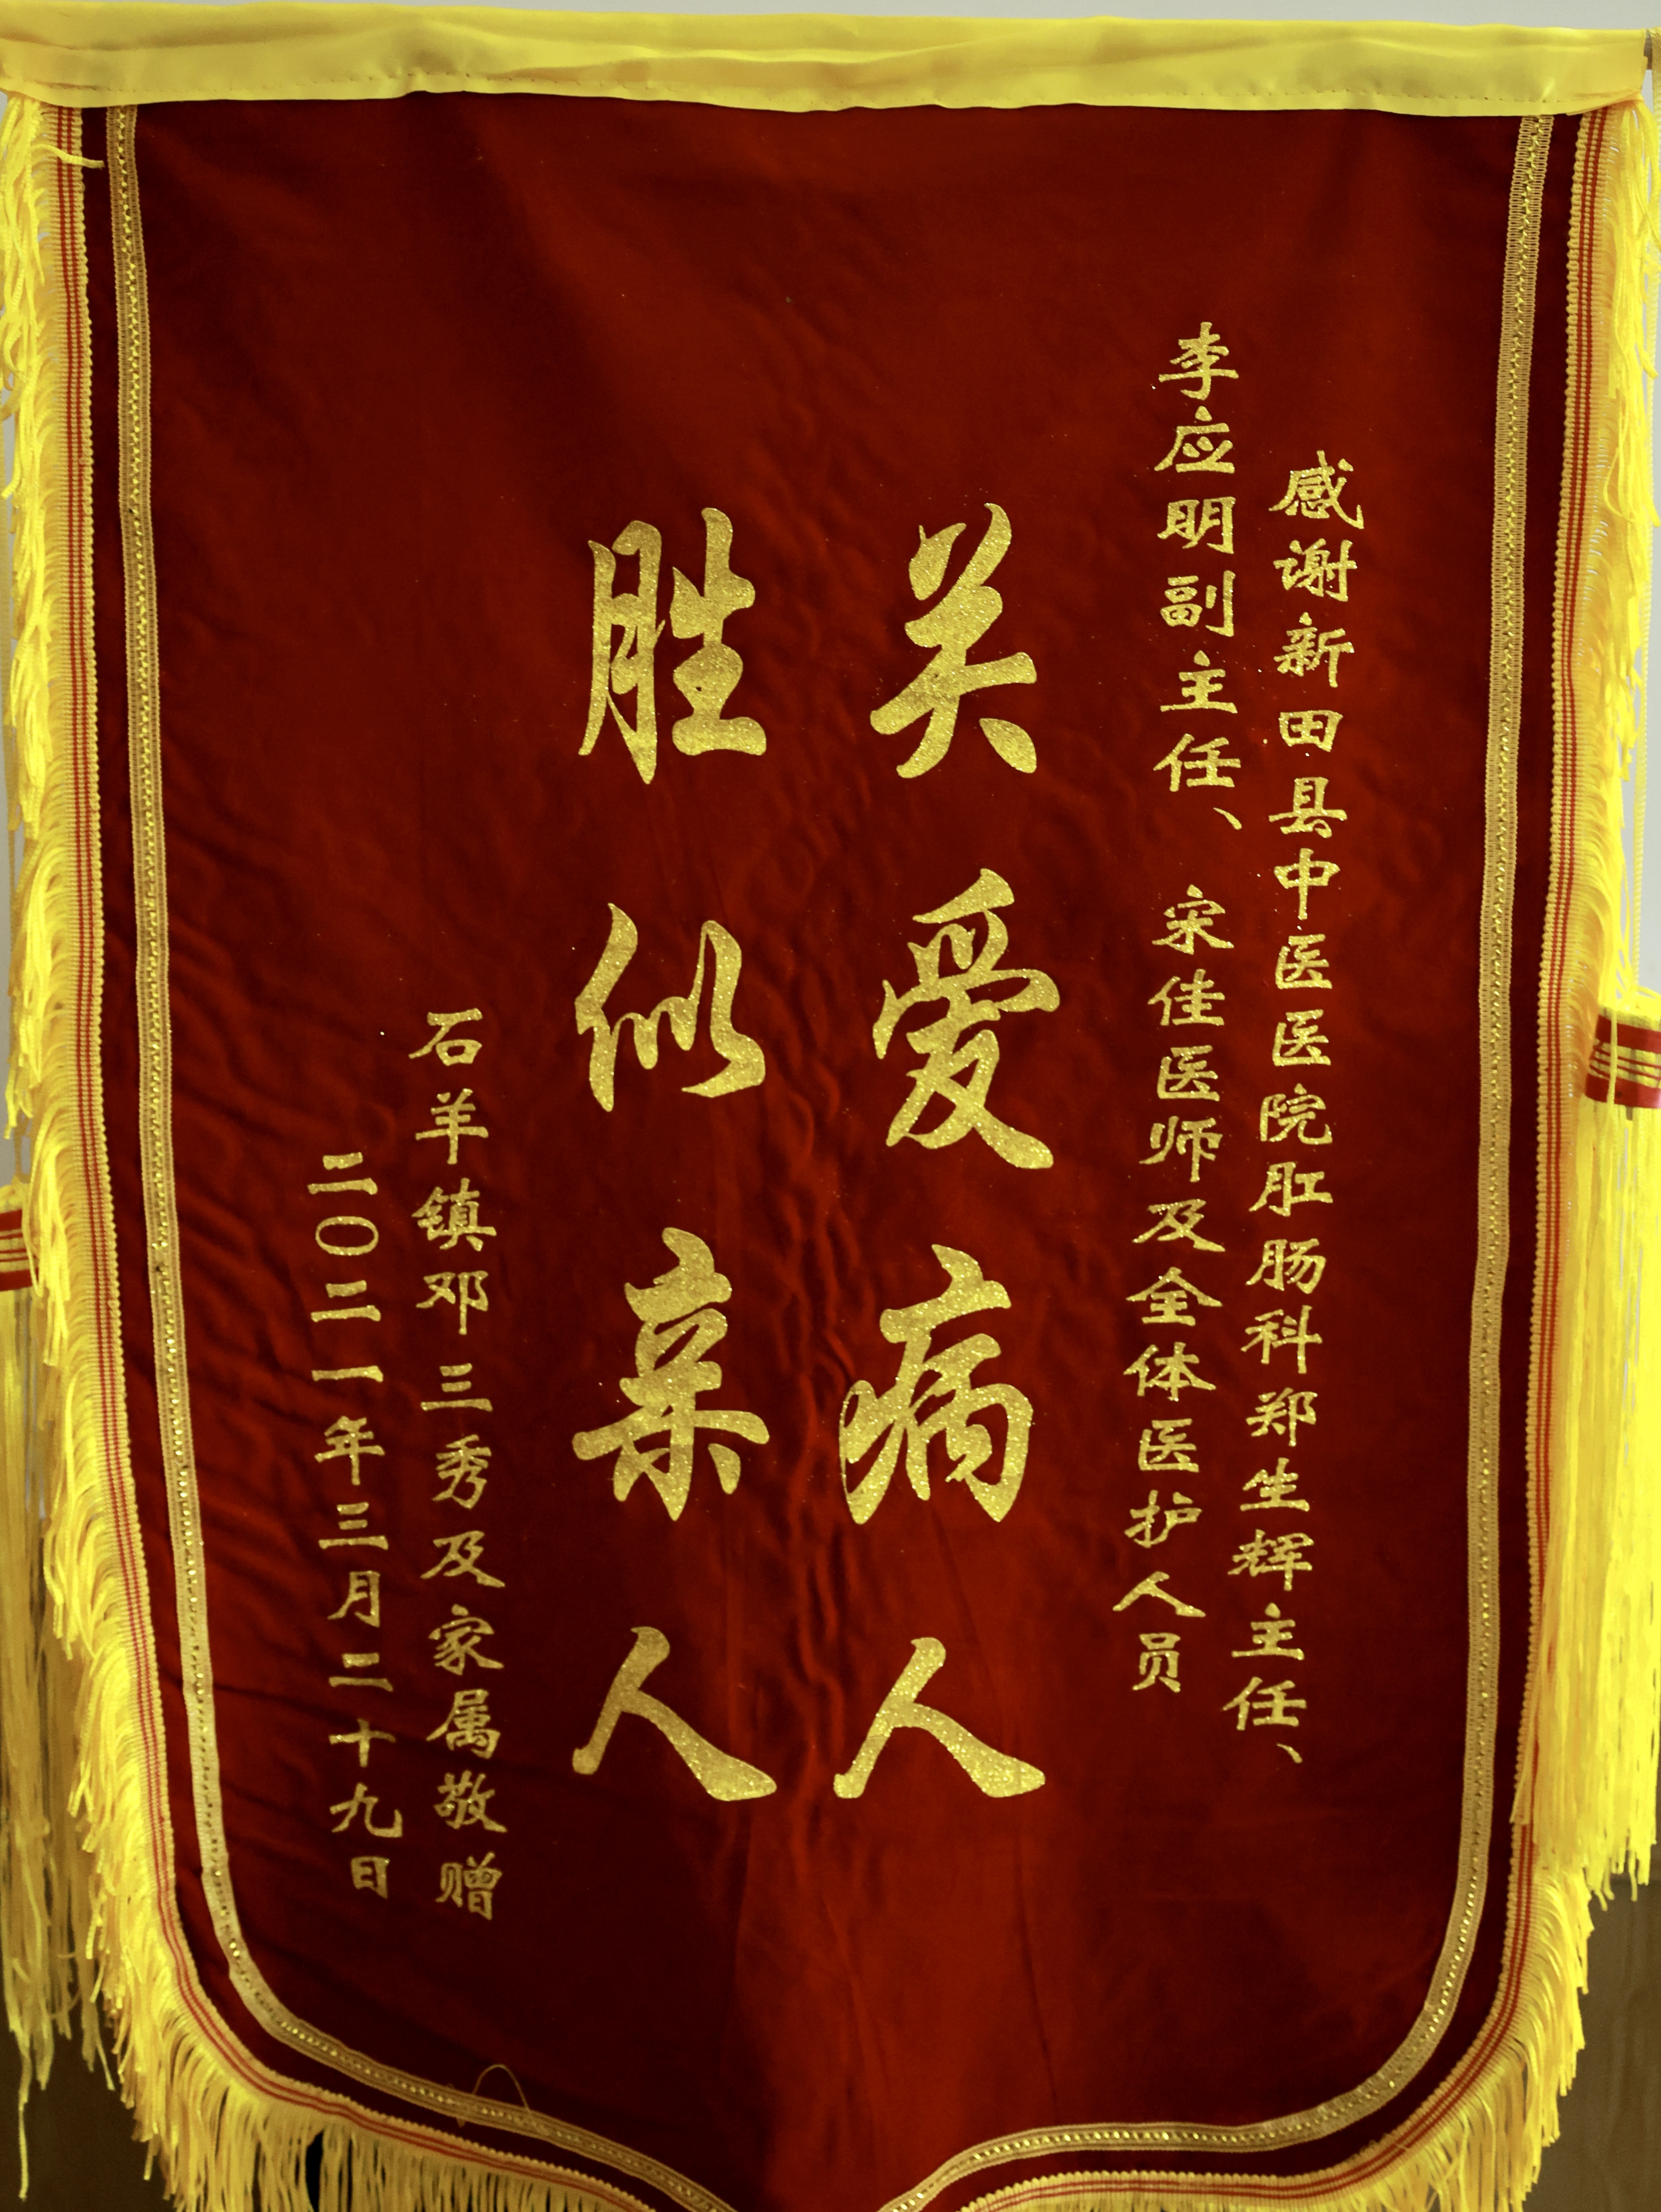 感谢新田县中医医院肛肠科郑生辉主任、
李应明副主任、宋佳医师及全体医护人员
关爱病人
胜似亲人
石羊镇邓三秀及家属敬赠
二〇二一年三月二十九日